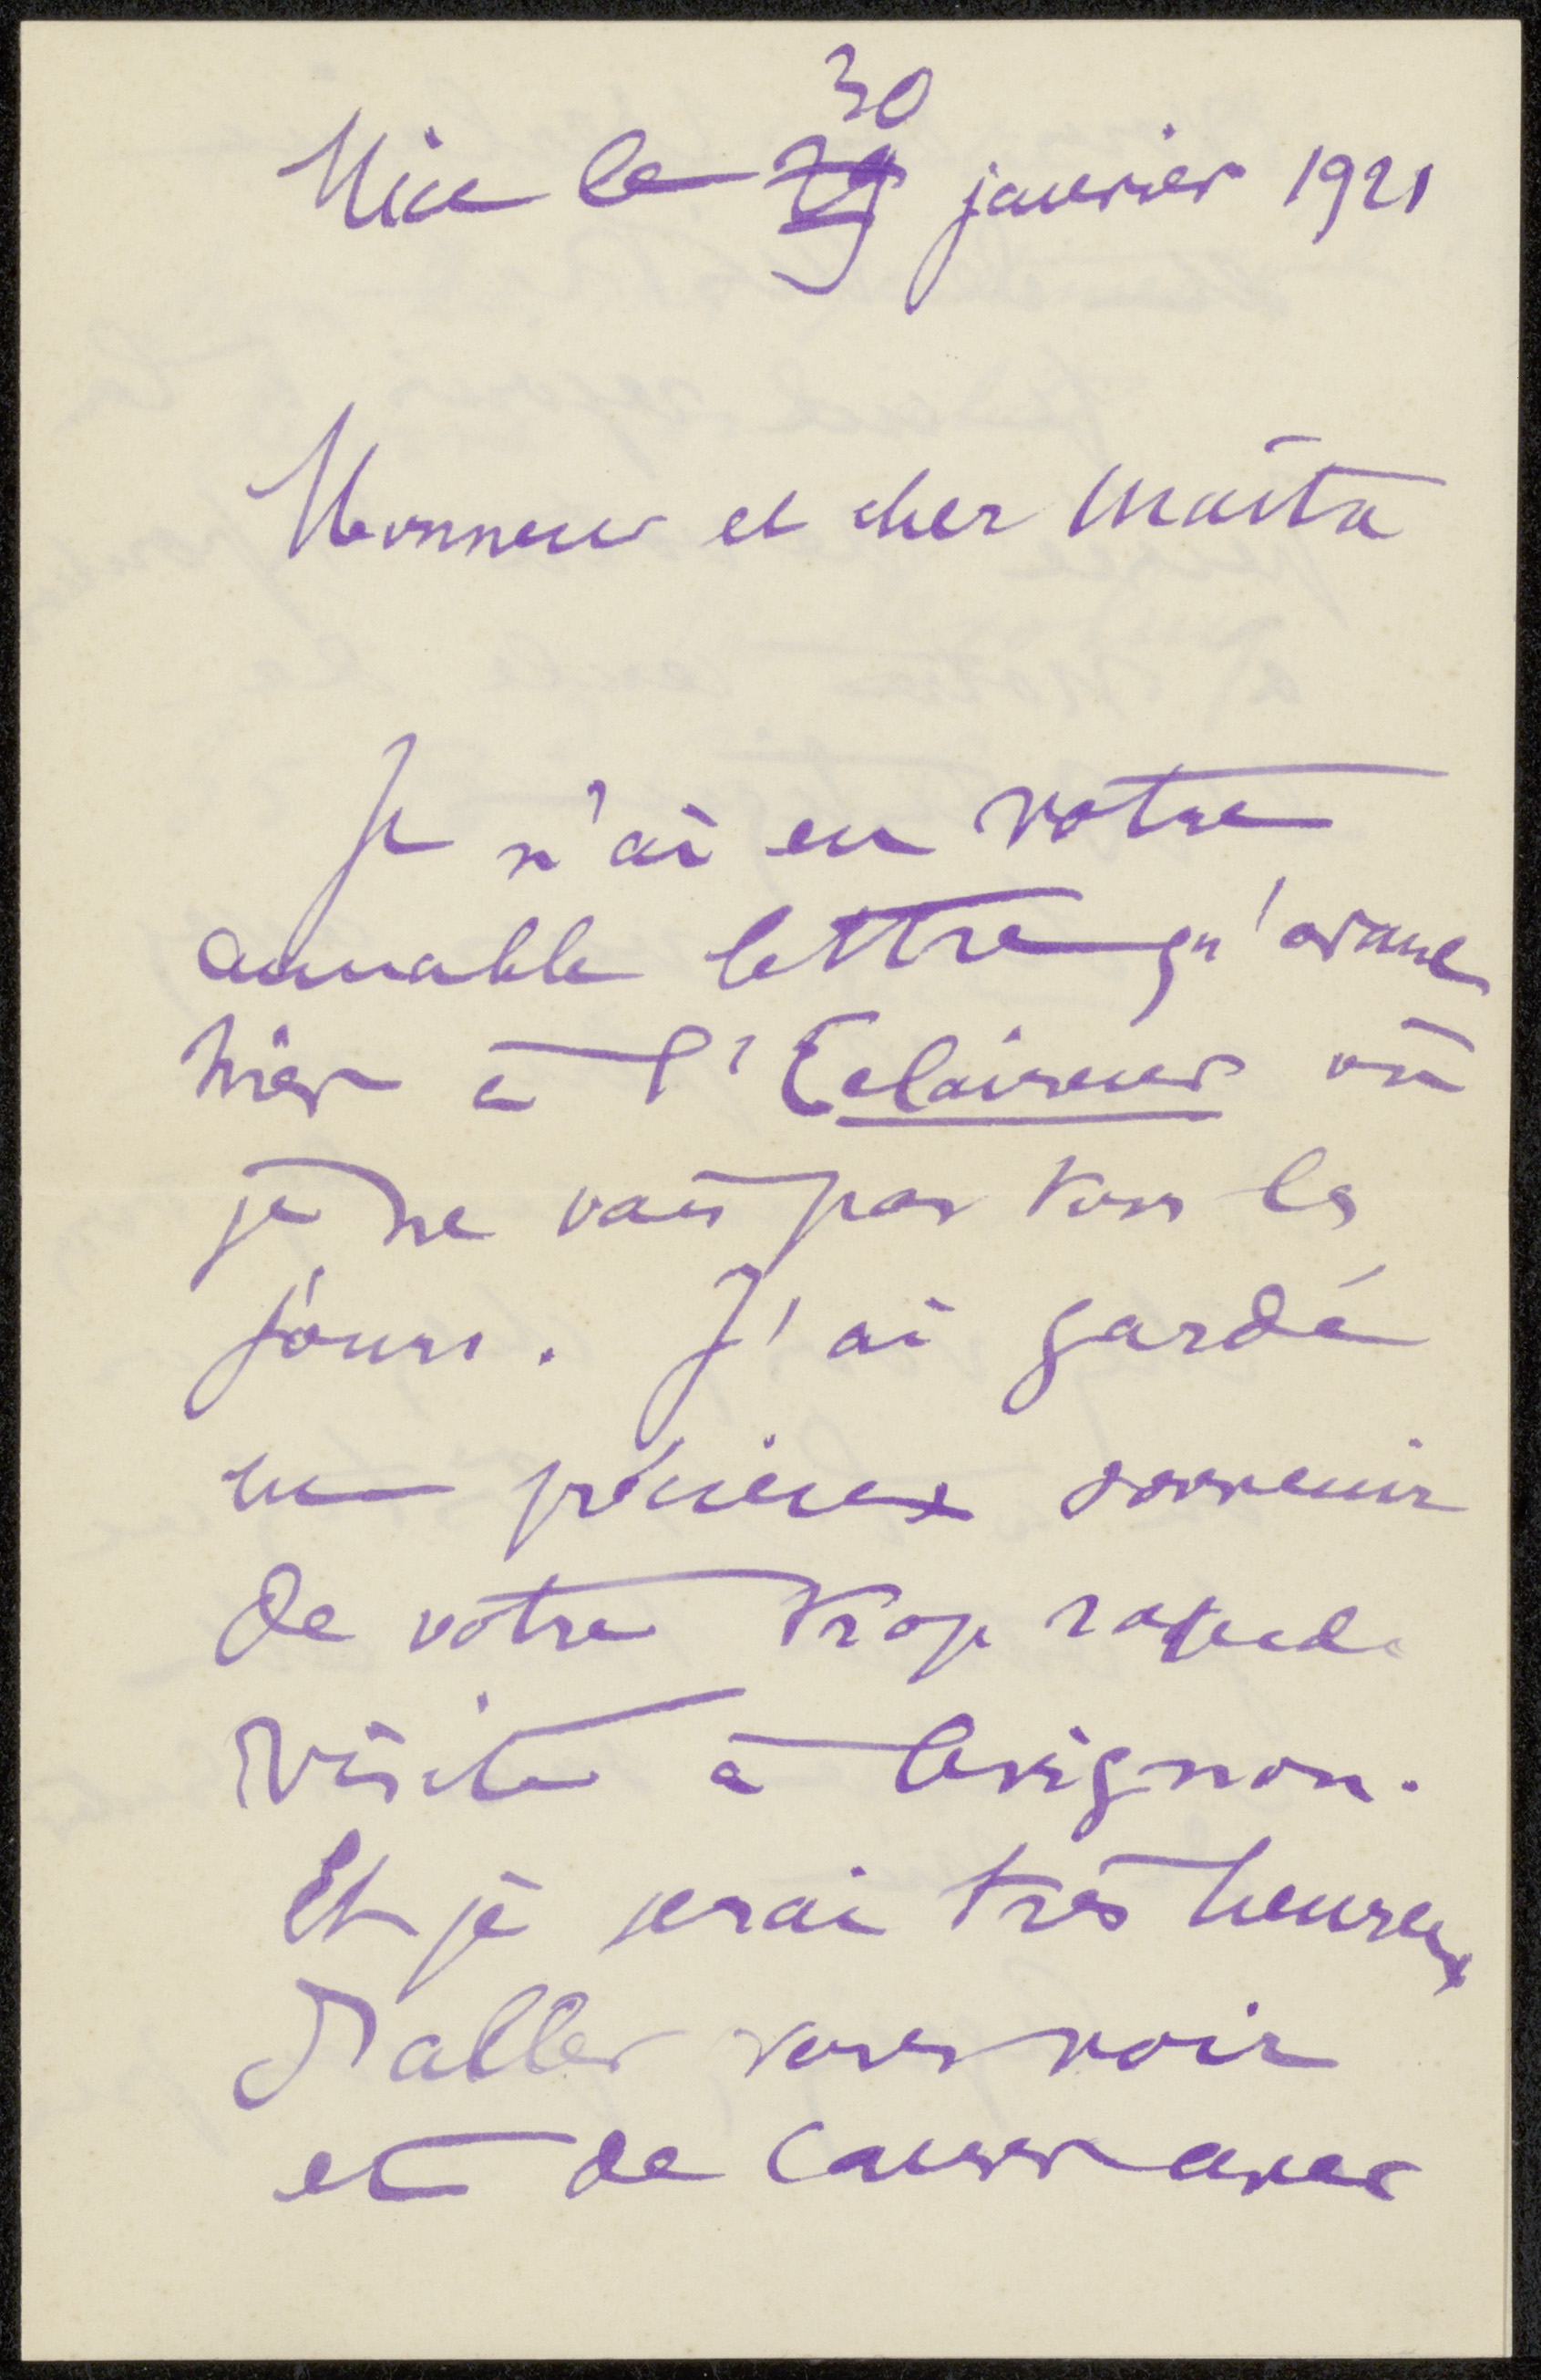 30
Nice le 29 janvier 1921
Monsieur et cher Maître
Je n'ai eu votre
aimable lettre qu'avant
hier à l'Eclaireur où
je ne vais pas tous les
jours. J'ai gardé
un précieux souvenir
de votre trop rapide
visite à Avignon.
Et je serai très heureux
d'aller vous voir
et de causer avec